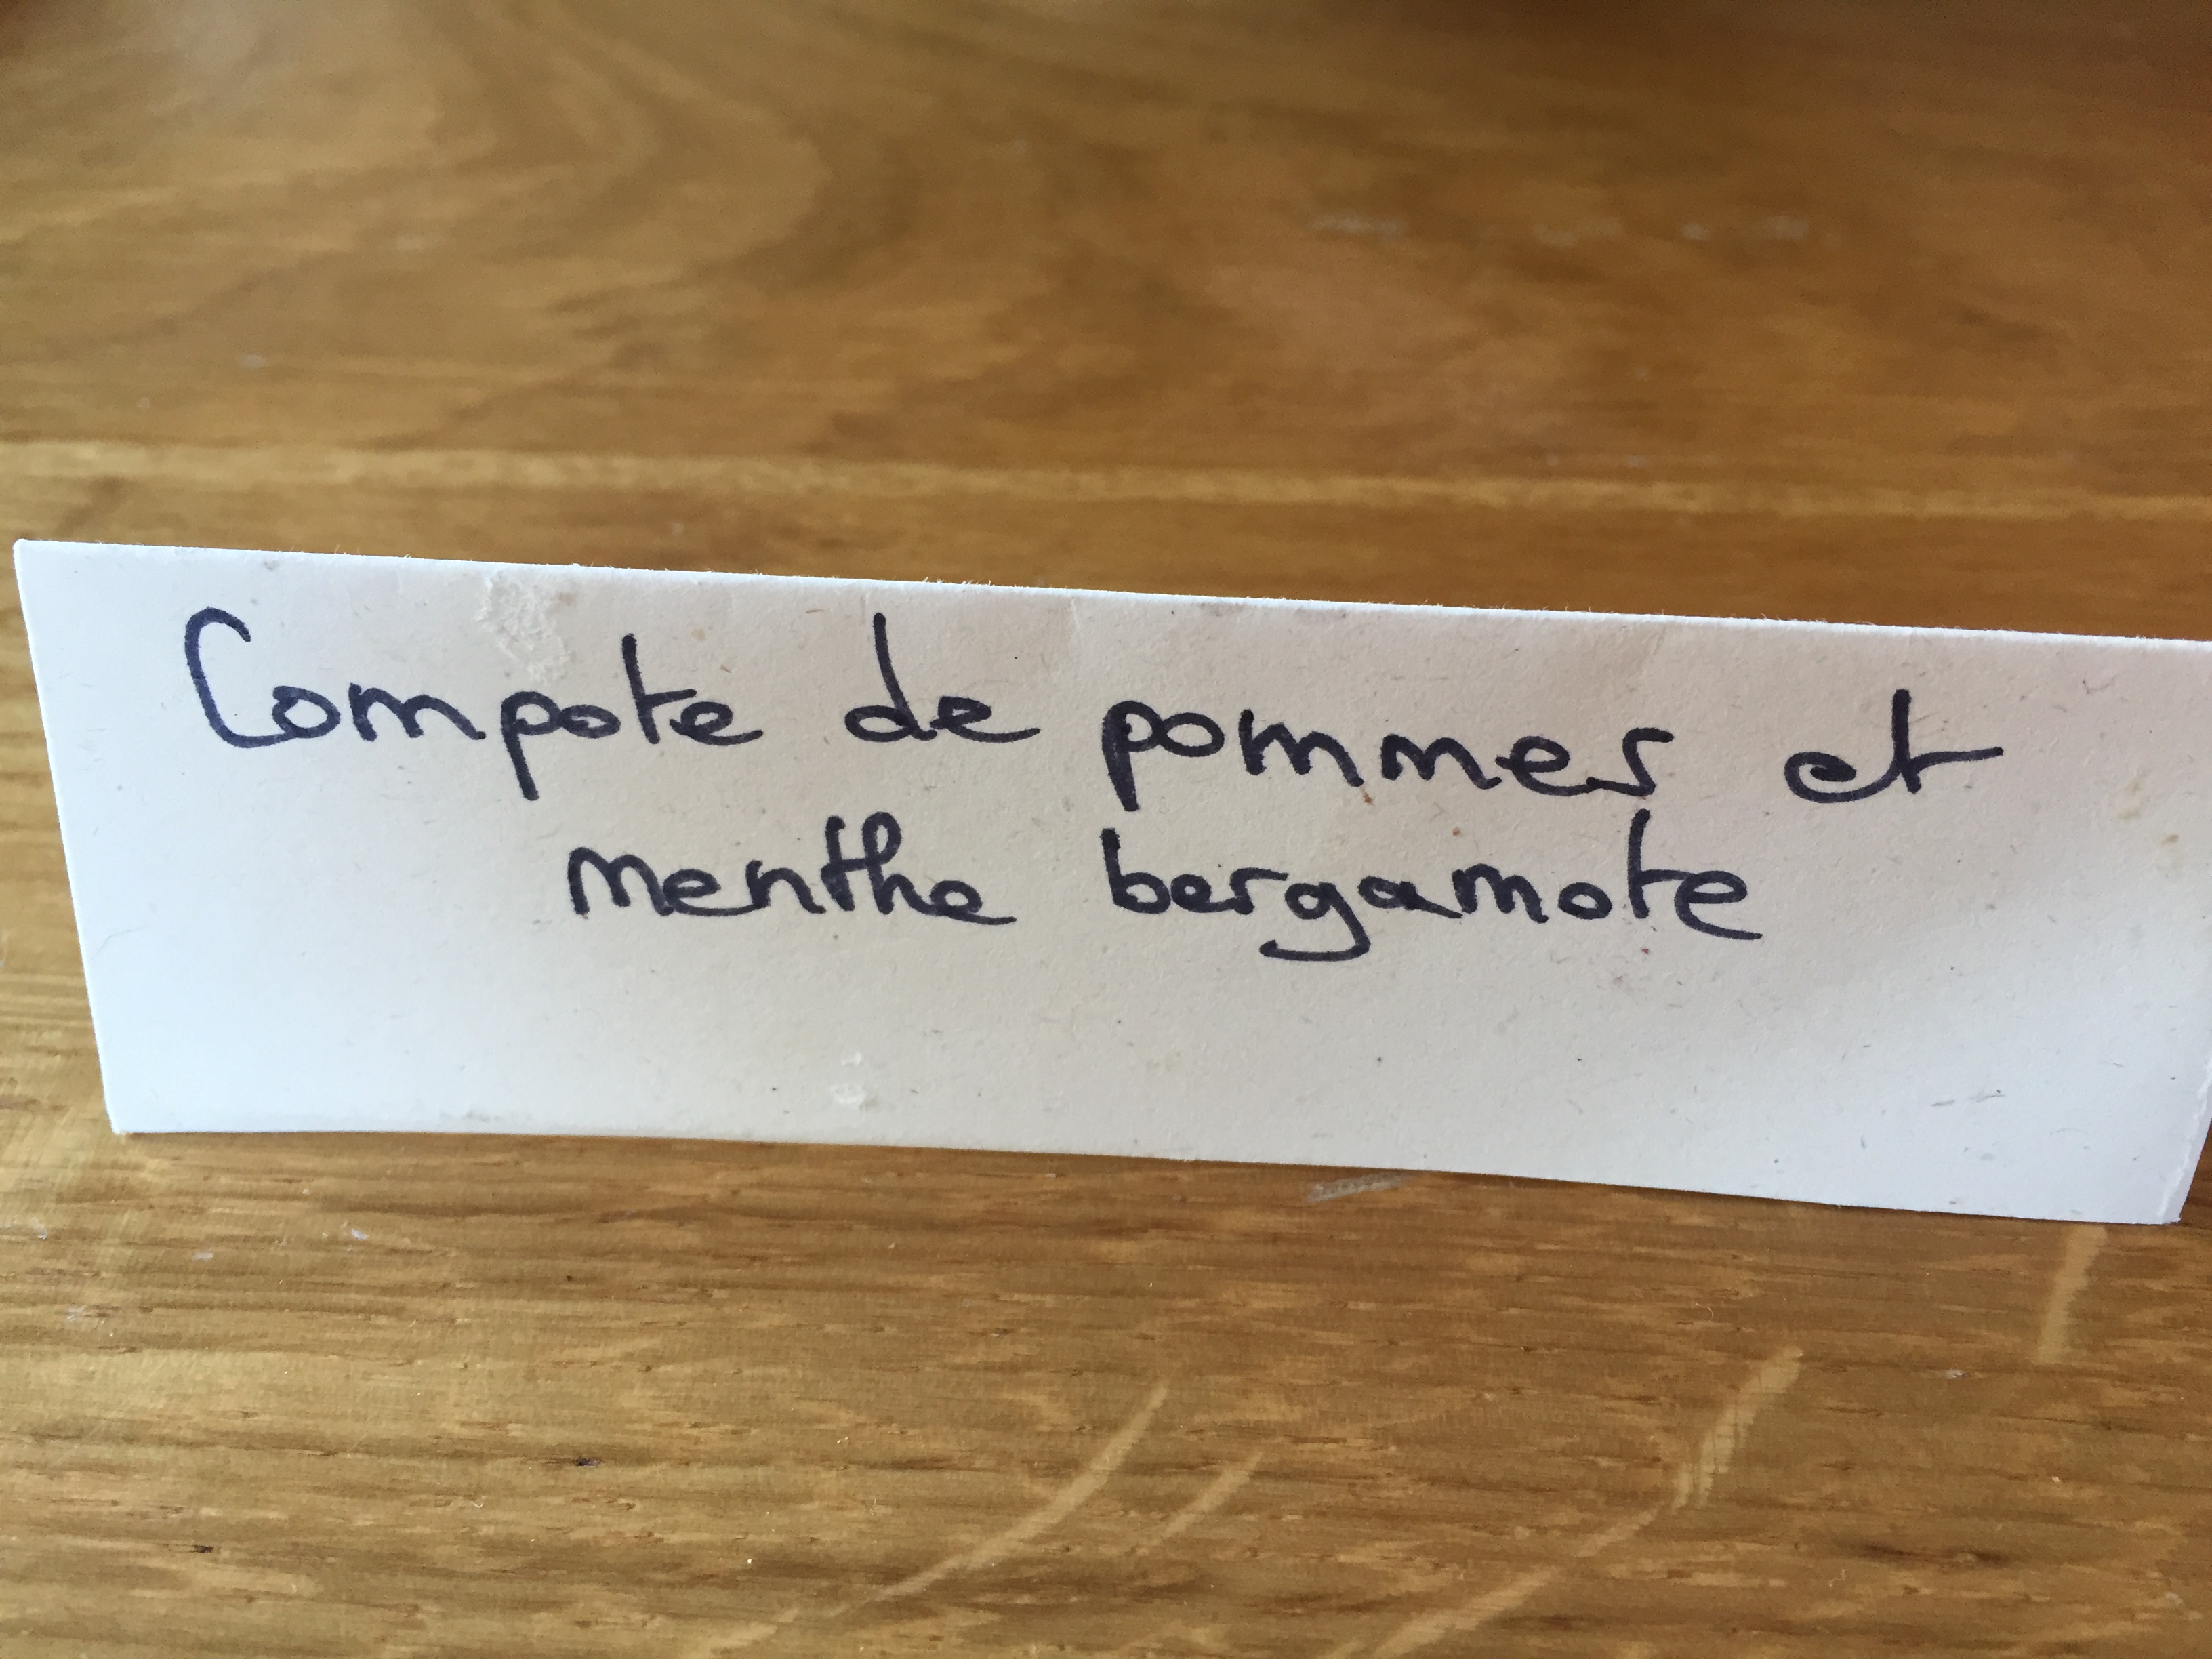 Compote de pommes et
menthe bergamote